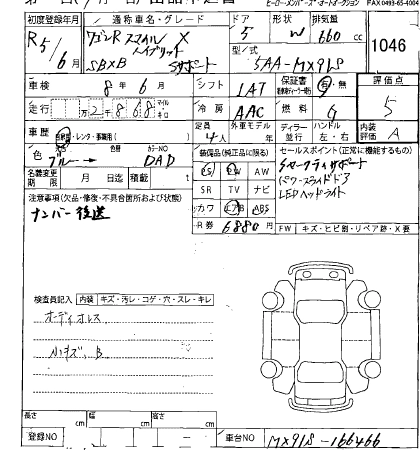 FAX 0493-65-4004
初度登録年月 通称車名・グレード ドア 形状 排気量
R5/6月 ワゴンR スマイル X 5 W 660 cc
ハイブリット 型式
SBXB Sサポート 5AA-MX91S 1046
車検 8年 6月 シフト IAT 保証書 有・無 評価点
走行 2 868 マイル キロ 冷房 AAC 燃料 G 5
車歴 自家用・レンタ・事業用( ) 定員 外車モデル ディーラー ハンドル 内装
4人 並行 左・右 評価 A
色 色替 カラーNO 装備品(純正品に限る) セールスポイント(正常に機能するもの)
ブルー DAD PS PW AW
名義変更期限 月 日迄 積載 t SR TV ナビ パワースライドドア
注意事項(欠品・修復・不具合箇所および状態) カワ エアB ABS LEDヘッドライト
ナンバー後送 R券 6880円 FW キズ・ヒビ割・リペア跡・X
検査員記入 内装 キズ・汚レ・コゲ・穴・スレ・キレ
オーディオレス
小キズ、B
長さ cm 幅 cm 高さ cm
登録NO 車台NO MX91S-166466